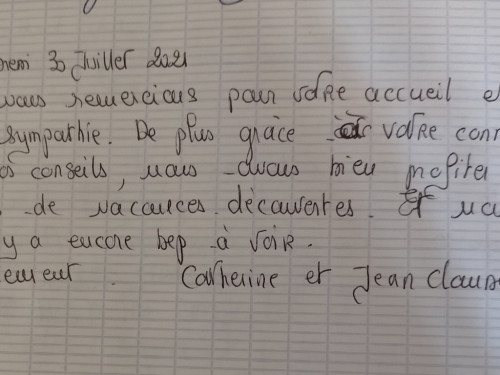 30 Juillet 2021
vous remercions pour votre accueil et
sympathie. De plus grâce à votre
conseils, nous avons bien profiter
de vacances découvertes. Et
y a encore bcp à voir.
Catherine et Jean Claude